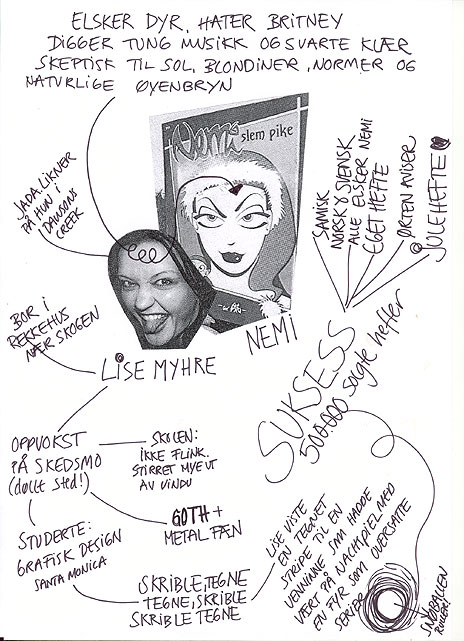 ELSKER DYR, HATER BRITNEY
DIGGER TUNG MUSIKK OG SVARTE KLÆR
SKEPTISK TIL SOL, BLONDINER, NORMER OG
NATURLIGE ØYENBRYN
Nemi
slem pike
JADA LIKNER
PÅ HUN I
DAWSONS
CREEK
SAMISK
NORSK & SVENSK
ALLE ELSKER NEMI
EGET HEFTE
ØRTEN AVISER
JULEHEFTE
NEMI
BOR I
REKKEHUS
NÆR SKOGEN
LISE MYHRE
SUKSESS
500000 solgte hefter
OPPVOKST
PÅ SKEDSMO
(døllt sted!)
SKOLEN:
IKKE FLINK.
STIRRET MYE UT
AV VINDU
GOTH +
METAL FAN
STUDERTE:
GRAFISK DESIGN
SANTA MONICA
SKRIBLE, TEGNE
TEGNE, SKRIBLE
SKRIBLE TEGNE
LISE VISTE
EN TEGNET
STRIPE TIL EN
VENNINNE SOM HADDE
VÆRT PÅ NACHSPIEL MED
EN FYR SOM OVERSATTE
SERIER
SNØBALLEN
RULLER!